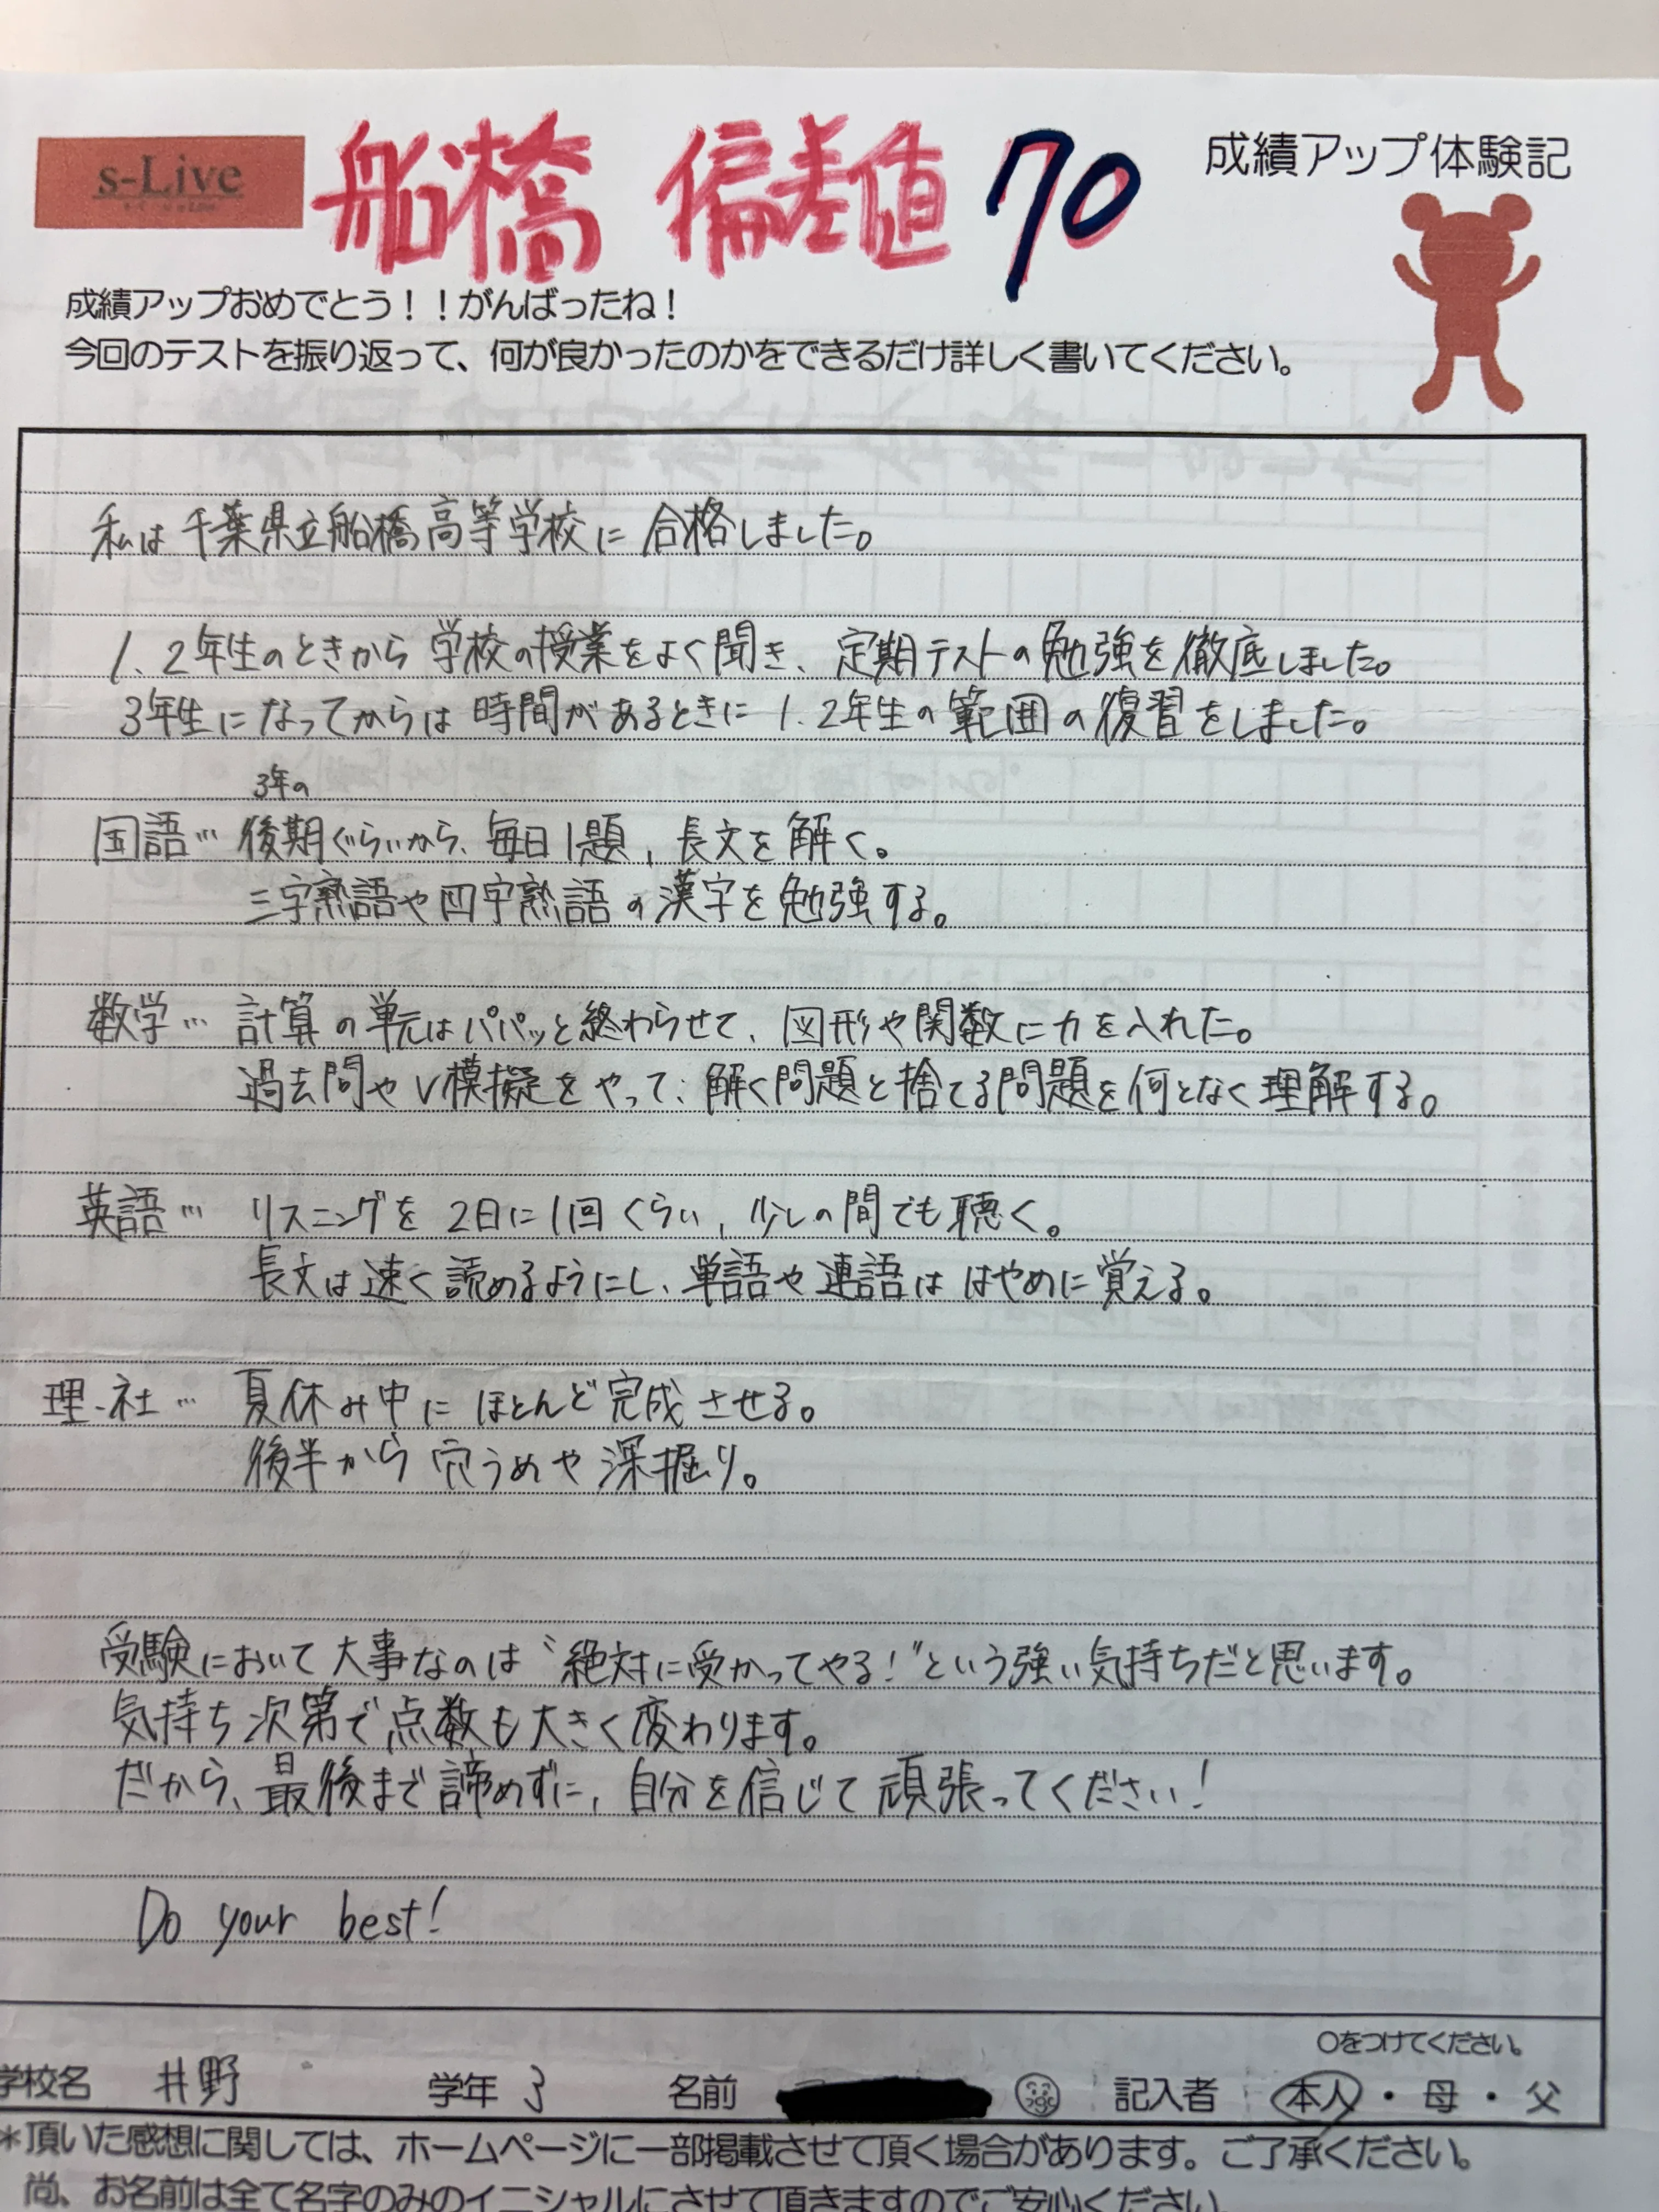 s-Live
船橋 偏差値 70
成績アップ体験記
成績アップおめでとう！！がんばったね！
今回のテストを振り返って、何が良かったのかをできるだけ詳しく書いてください。
私は千葉県立船橋高等学校に合格しました。
1、2年生のときから学校の授業をよく聞き、定期テストの勉強を徹底しました。
3年生になってからは時間があるときに1、2年生の範囲の復習をしました。
3年の
国語… 後期ぐらいから、毎日1題、長文を解く。
三字熟語や四字熟語の漢字を勉強する。
数学… 計算の単元はパパッと終わらせて、図形や関数に力を入れた。
過去問やV模擬をやって、解く問題と捨てる問題を何となく理解する。
英語… リスニングを2日に1回くらい、少しの間でも聴く。
長文は速く読めるようにし、単語や連語ははやめに覚える。
理・社… 夏休み中にほとんど完成させる。
後半から穴うめや深掘り。
受験において大事なのは〝絶対に受かってやる！〟という強い気持ちだと思います。
気持ち次第で点数も大きく変わります。
だから、最後まで諦めずに、自分を信じて頑張ってください！
Do your best!
○をつけてください。
学校名 井野 学年 3 名前 記入者 本人・母・父
＊頂いた感想に関しては、ホームページに一部掲載させて頂く場合があります。ご了承ください。
尚、お名前は全て名字のみのイニシャルにさせて頂きますのでご安心ください。